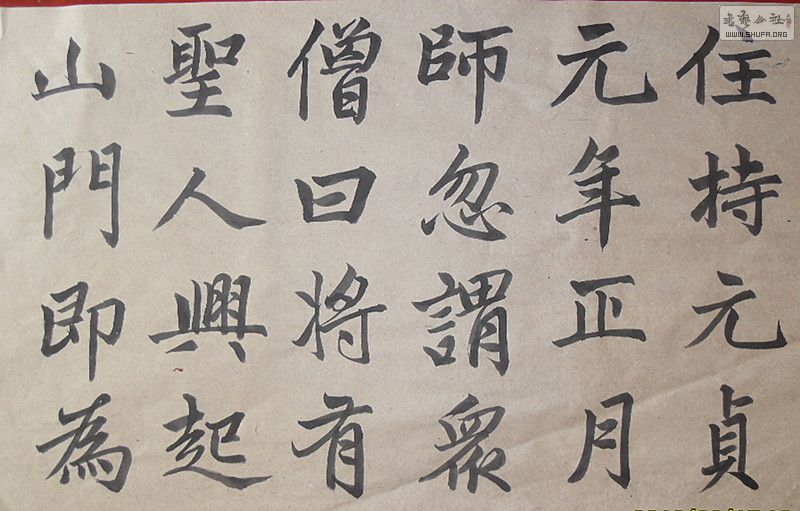 住持元貞
元年正月
師忽謂衆
僧曰將有
聖人興起
山門即為
书艺公社
WWW.SHUFA.ORG